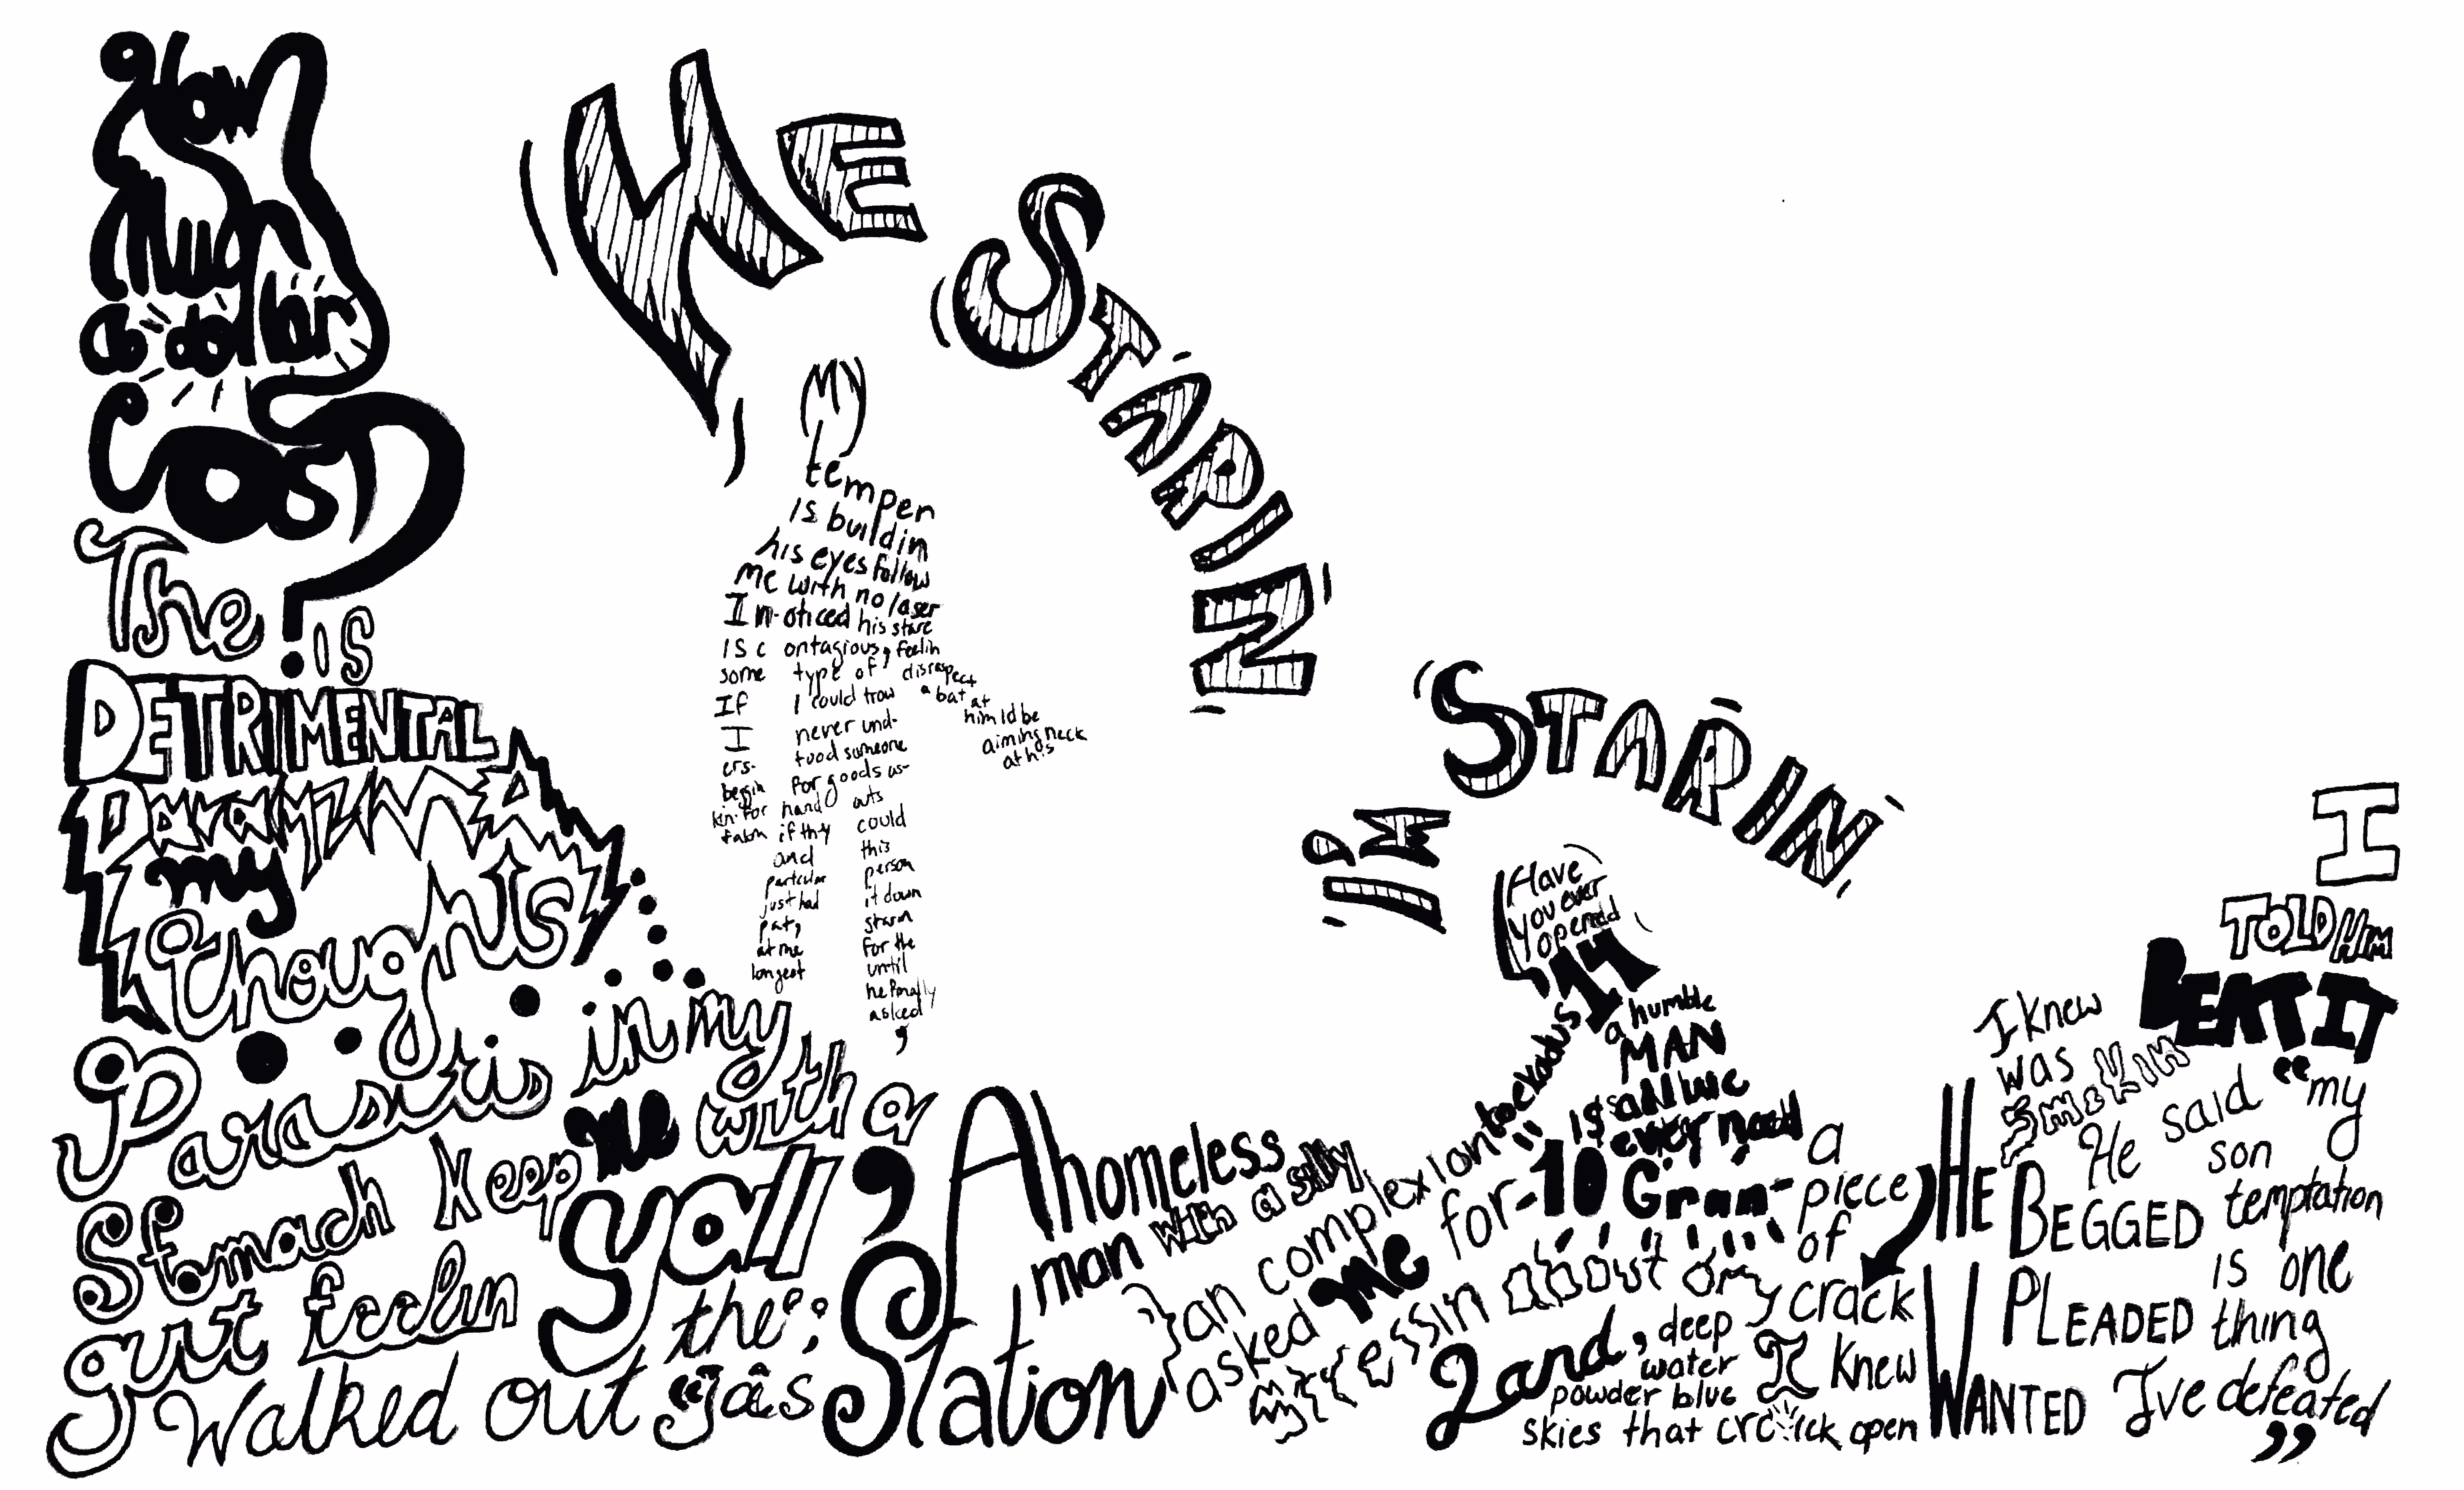 How
Much
a dollar
Cost
The ? is
DETRIMENTAL
my
thoughts
Parasites in my
Stomach keep me with a
gut feelin y'all,
Walked out the gas Station
A homeless
man with a silly
tan complexion
asked me for 10 Gran-
a
piece
of
crack
HE
BEGGED
PLEADED
WANTED
I knew
was
smokin
I
TOLD HIM
BEAT IT
He said "my
son
temptation
is one
thing
I've defeated
"
HE
STARIN
I'M
STARIN
My
temper
is buildin
his eyes follow
me with no laser
I n-oticed his stare
Is c ontagious, feelin
some type of disrespect
If I could trow a bat at
him Id be
aiming neck
at his
I never und-
ers- tood someone
beggin for goods as-
kin for hand outs
takin if they could
and this
particular person
just had it down
pat, starin
at me for the
longest until
he finally
asked
,
Have
you ever
opened
Exodus 14
a humble
MAN
is all we
ever need
messin about my
Land, deep
water
powder blue
skies that crack open
I knew